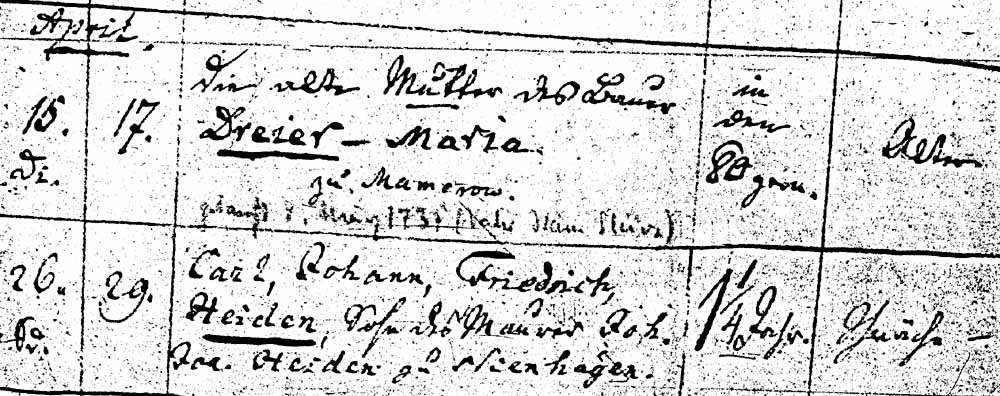 April.
15.
Di.
17.
Die alte Mutter des Bauer
Dreier – Maria
zu Mamerow.
getauft 8. März 173
in
den
80 gern.
Alter
26.
29.
Carl, Johann, Friedrich,
Heiden, Sohn des Maurer Joh.
Joa. Heiden zu Nienhagen.
1 1/4 Jahr.